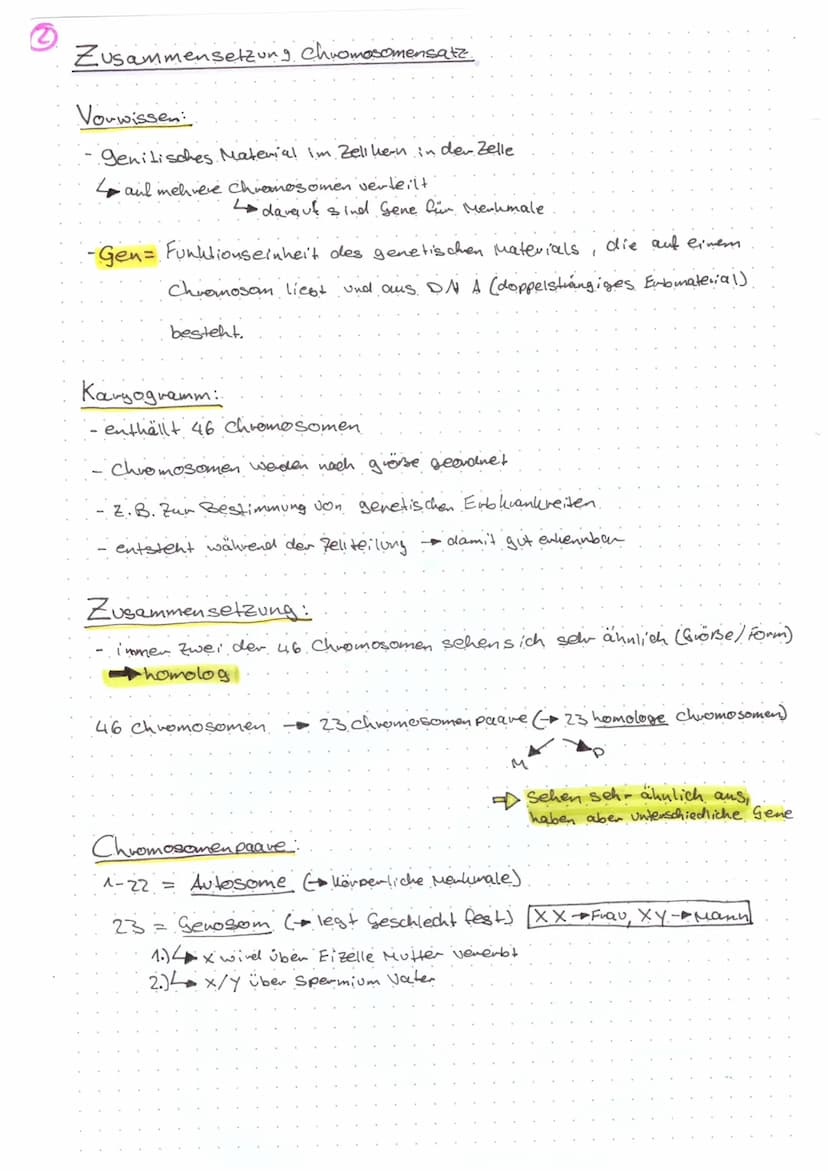 2
Zusammensetzung Chromosomensatz
Vorwissen:
- genitisches Material im Zellkern in der Zelle
↳ auf mehrere Chromosomen verteilt
↳ darauf sind Gene für Merkmale
- Gen = Funktionseinheit des genetischen Materials, die auf einem
Chromosom liegt und aus DNA (doppelsträngiges Erbmaterial)
besteht.
Karyogramm:
- enthällt 46 Chromosomen
- Chromosomen werden nach größe geordnet
- z.B. zur Bestimmung von genetischen Erbkrankheiten
- entsteht während der Zellteilung → damit gut erkennbar
Zusammensetzung:
- immer zwei der 46 Chromosomen sehen sich sehr ähnlich (Größe/Form)
→ homolog
46 Chromosomen → 23 Chromosomenpaare (→ 23 homologe Chromosomen)
M P
⇒ sehen sehr ähnlich aus,
haben aber unterschiedliche Gene
Chromosomenpaare:
1-22 = Autosome (→ körperliche Merkmale)
23 = Genosom (→ legt Geschlecht fest) XX → Frau, XY → Mann
1.) ↳ X wird über Eizelle Mutter vererbt
2.) ↳ X/Y über Spermium Vater